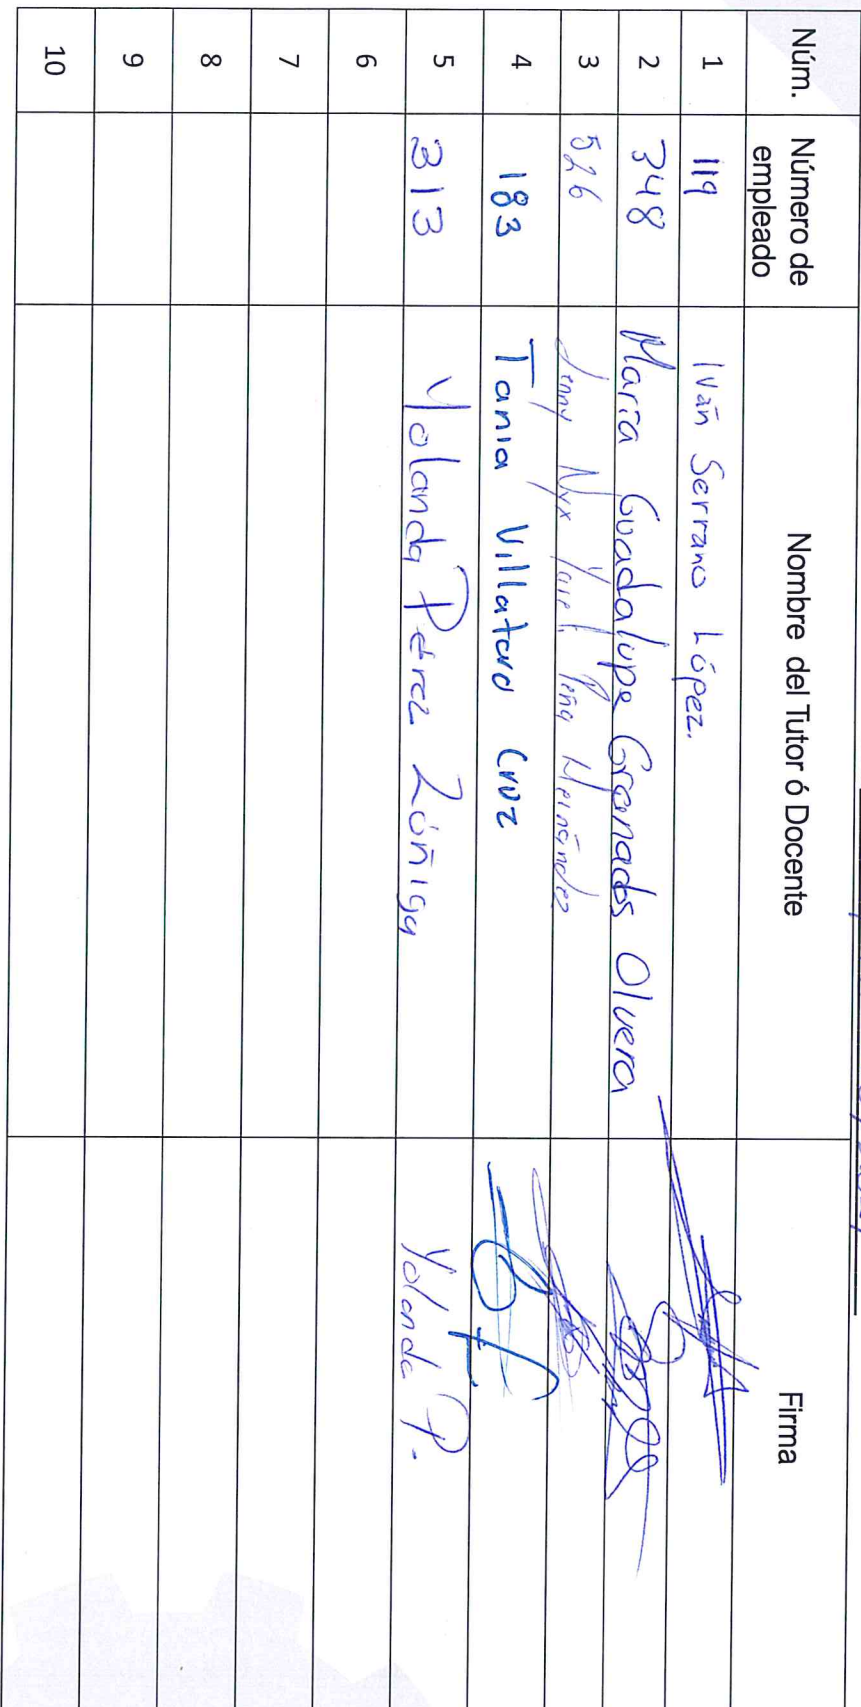 Núm. Número de empleado Nombre del Tutor ó Docente Firma
1 119 Iván Serrano López.
2 348 María Guadalupe Granados Olvera
3 526 Jenny Nyx Yareli Peña Hernández
4 183 Tania Villatoro Cruz
5 313 Yolanda Pérez Zúñiga Yolanda P.
6
7
8
9
10